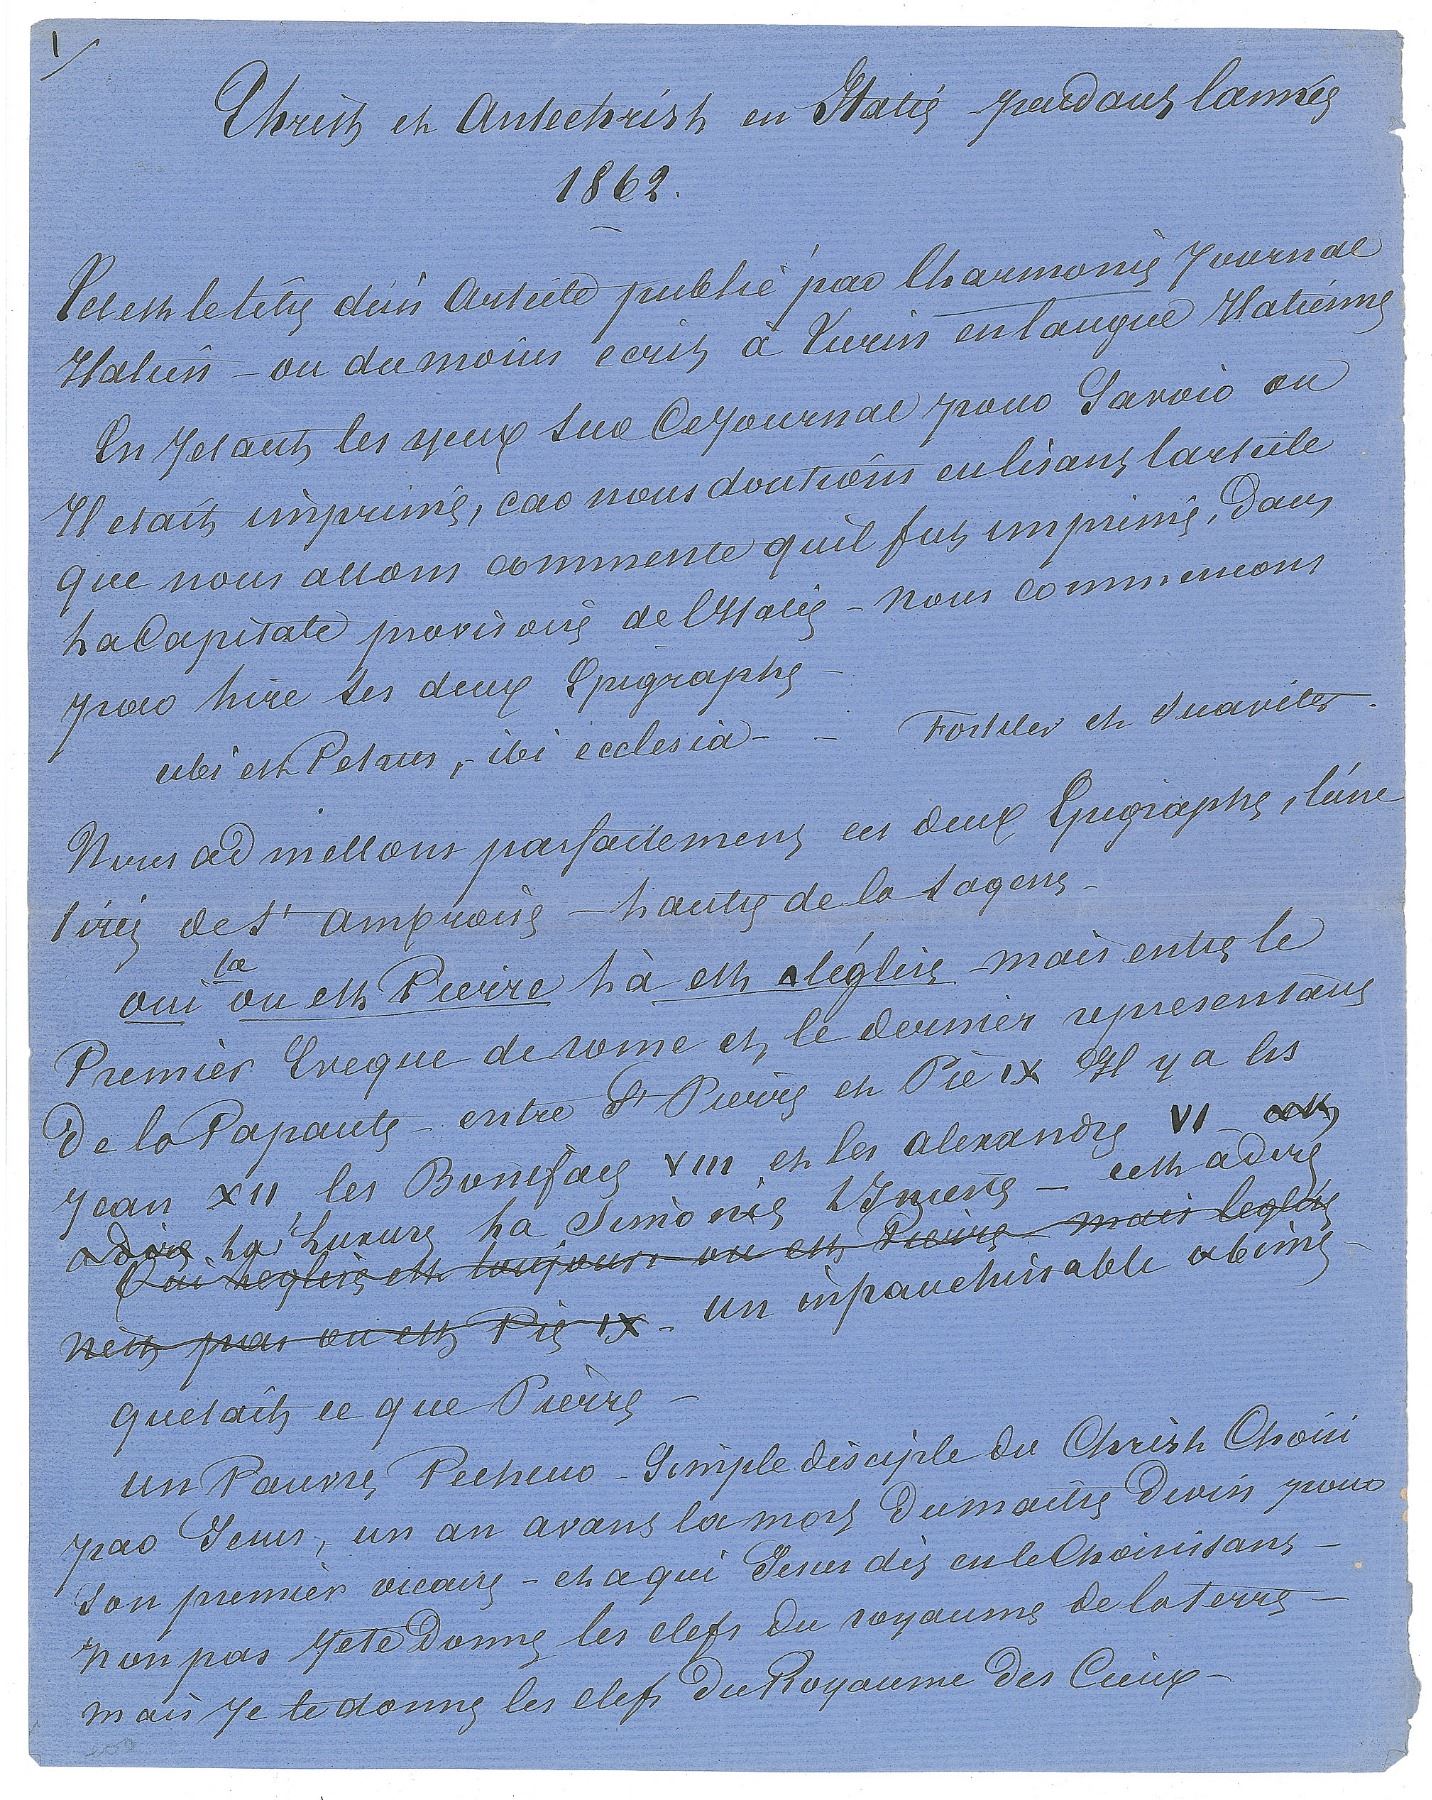 1/
Christ et Antechrist en Italie pendant lannée
1862.
Tel est le titre d'un Article publié par Lharmonie Journal
Italien – ou du moins ecrit à Turin en langue Italienne
En Jetant les yeux sur Ce Journal pour Savoir ou
Il etait imprimé, car nous doutions en lisant larticle
que nous allons commenter quil fut imprimé, dans
La Capitale provisoire de l'Italie – nous commencons
par Lire ses deux Epigraphe –
ubi est Petrus, ibi ecclesia – – Fortiter et suaviter.
Nous admettons parfaitement ces deux Epigraphe, l'une
tirée de St Ambroise – Lautre de la sagesse –
la
oui ou est Pierre Là est l'église – mais entre le
Premier Eveque de rome et le dernier representant
De la Papauté – entre St Pierre et Pie IX Il y a les
Jean XII les Boniface VIII et les alexandre VI – cest
adire La Luxure La Simonie Linceste – cest adire
Oui leglise est toujours ou est Pierre – mais leglise
nest pas ou est Pie IX – un infranchissable abime –
quetait ce que Pierre –
un Pauvre Pecheur – Simple disciple du Christ Choisi
par Jesus, un an avant la mort Du maitre Divin pour
son premier vicaire – et a qui Jesus dit en le Choisissant –
Non pas Je te Donne les clefs du royaume de la terre –
mais Je te donne les clefs Du Royaume Des Cieux –